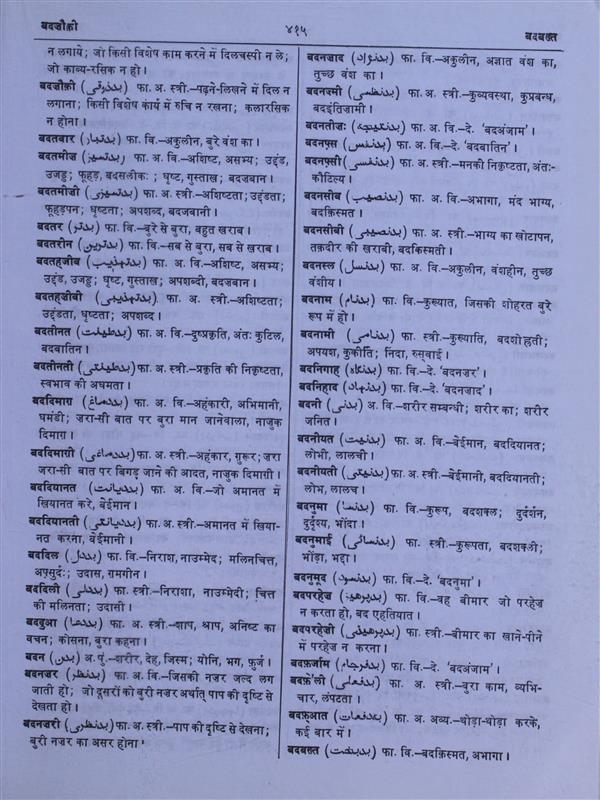 बदज़ौक़ी
४१५
बदबख़्त
न लगाये; जो किसी विशेष काम करने में दिलचस्पी न ले;
जो काव्य-रसिक न हो।
बदज़ौक़ी (بدذوقی) फा. अ. स्त्री.–पढ़ने-लिखने में दिल न
लगाना; किसी विशेष कार्य में रुचि न रखना; कलारसिक
न होना।
बदतबार (بدتبار) फा. वि.–अकुलीन, बुरे वंश का।
बदतमीज़ (بدتمیز) फा. अ. वि.–अशिष्ट, असभ्य; उद्दंड,
उजड्ड; फूहड़, बदसलीक़ः; धृष्ट, गुस्ताख़; बदज़बान।
बदतमीज़ी (بدتمیزی) फा. अ. स्त्री.–अशिष्टता; उद्दंडता;
फूहड़पन; धृष्टता; अपशब्द, बदज़बानी।
बदतर (بدتر) फा. वि.–बुरे से बुरा, बहुत खराब।
बदतरीन (بدترین) फा. वि.–सब से बुरा, सब से खराब।
बदतहज़ीब (بدتہذیب) फा. अ. वि.–अशिष्ट, असभ्य;
उद्दंड, उजड्ड; धृष्ट, गुस्ताख़; अपशब्दी, बदज़बान।
बदतहज़ीबी (بدتہذیبی) फा. अ. स्त्री.–अशिष्टता;
उद्दंडता, धृष्टता; अपशब्द।
बदतीनत (بدطینت) फा. अ. वि.–दुष्प्रकृति, अंतः कुटिल,
बदबातिन।
बदतीनती (بدطینتی) फा. अ. स्त्री.–प्रकृति की निकृष्टता,
स्वभाव की अधमता।
बददिमाग़ (بددماغ) फा. अ. वि.–अहंकारी, अभिमानी,
घमंडी; ज़रा-सी बात पर बुरा मान जानेवाला, नाज़ुक
दिमाग़।
बददिमाग़ी (بددماغی) फा. अ. स्त्री.–अहंकार, ग़ुरूर; ज़रा
ज़रा-सी बात पर बिगड़ जाने की आदत, नाज़ुक दिमाग़ी।
बददियानत (بددیانت) फा. अ. वि.–जो अमानत में
ख़ियानत करे, बेईमान।
बददियानती (بددیانتی) फा. अ. स्त्री.–अमानत में ख़िया-
नत करना, बेईमानी।
बददिल (بددل) फा. वि.–निराश, नाउम्मेद; मलिनचित्त,
अफ़्सुर्दः; उदास, ग़मगीन।
बददिली (بددلی) फा. स्त्री.–निराशा, नाउम्मेदी; चित्त
की मलिनता; उदासी।
बददुआ (بددعا) फा. अ. स्त्री.–शाप, श्राप, अनिष्ट का
वचन; कोसना, बुरा कहना।
बदन (بدن) अ. पुं.–शरीर, देह, जिस्म; योनि, भग, फ़ुर्ज।
बदनज़र (بدنظر) फा. अ. वि.–जिसकी नज़र जल्द लग
जाती हो; जो दूसरों को बुरी नज़र अर्थात् पाप की दृष्टि से
देखता हो।
बदनज़री (بدنظری) फा. अ. स्त्री.–पाप की दृष्टि से देखना;
बुरी नज़र का असर होना।
बदनज़ाद (بدنژاد) फा. वि.–अकुलीन, अज्ञात वंश का,
तुच्छ वंश का।
बदनज़्मी (بدنظمی) फा. अ. स्त्री.–कुव्यवस्था, कुप्रबन्ध,
बदइंतिज़ामी।
बदनतीजः (بدنتیجہ) फा. अ. वि.–दे. 'बदअंजाम'।
बदनफ़्स (بدنفس) फा. अ. वि.–दे. 'बदबातिन'।
बदनफ़्सी (بدنفسی) फा. अ. स्त्री.–मनकी निकृष्टता, अंतः-
कौटिल्य।
बदनसीब (بدنصیب) फा. अ. वि.–अभागा, मंद भाग्य,
बदक़िस्मत।
बदनसीबी (بدنصیبی) फा. अ. स्त्री.–भाग्य का खोटापन,
तक़दीर की खराबी, बदकिस्मती।
बदनस्ल (بدنسل) फा. अ. वि.–अकुलीन, वंशहीन, तुच्छ
वंशीय।
बदनाम (بدنام) फा. वि.–कुख्यात, जिसकी शोहरत बुरे
रूप में हो।
बदनामी (بدنامی) फा. स्त्री.–कुख्याति, बदशोह्रती;
अपयश, कुकीर्ति; निंदा, रुस्वाई।
बदनिगाह (بدنگاہ) फा. वि.–दे. 'बदनज़र'।
बदनिहाद (بدنہاد) फा. वि.–दे. 'बदनज़ाद'।
बदनी (بدنی) अ. वि.–शरीर सम्बन्धी; शरीर का; शरीर
जनित।
बदनीयत (بدنیت) फा. अ. वि.–बेईमान, बददियानत;
लोभी, लालची।
बदनीयती (بدنیتی) फा. अ. स्त्री.–बेईमानी, बददियानती;
लोभ, लालच।
बदनुमा (بدنما) फा. वि.–कुरूप, बदशक्ल; दुर्दर्शन,
दुर्दृश्य, भोंडा।
बदनुमाई (بدنمائی) फा. स्त्री.–कुरूपता, बदशक्ली;
भोंड़ा, भद्दा।
बदनुमूद (بدنمود) फा. वि.–दे. 'बदनुमा'।
बदपरहेज़ (بدپرہیز) फा. वि.–वह बीमार जो परहेज़
न करता हो, बद एहतियात।
बदपरहेज़ी (بدپرہیزی) फा. स्त्री.–बीमार का खाने-पीने
में परहेज़ न करना।
बदफ़र्जाम (بدفرجام) फा. वि.–दे. 'बदअंजाम'।
बदफ़े'ली (بدفعلی) फा. अ. स्त्री.–बुरा काम, व्यभि-
चार, लंपटता।
बदफ़ूआत (بدفعات) फा. अ. अव्य.–थोड़ा-थोड़ा करके,
कई बार में।
बदबख़्त (بدبخت) फा. वि.–बदक़िस्मत, अभागा।